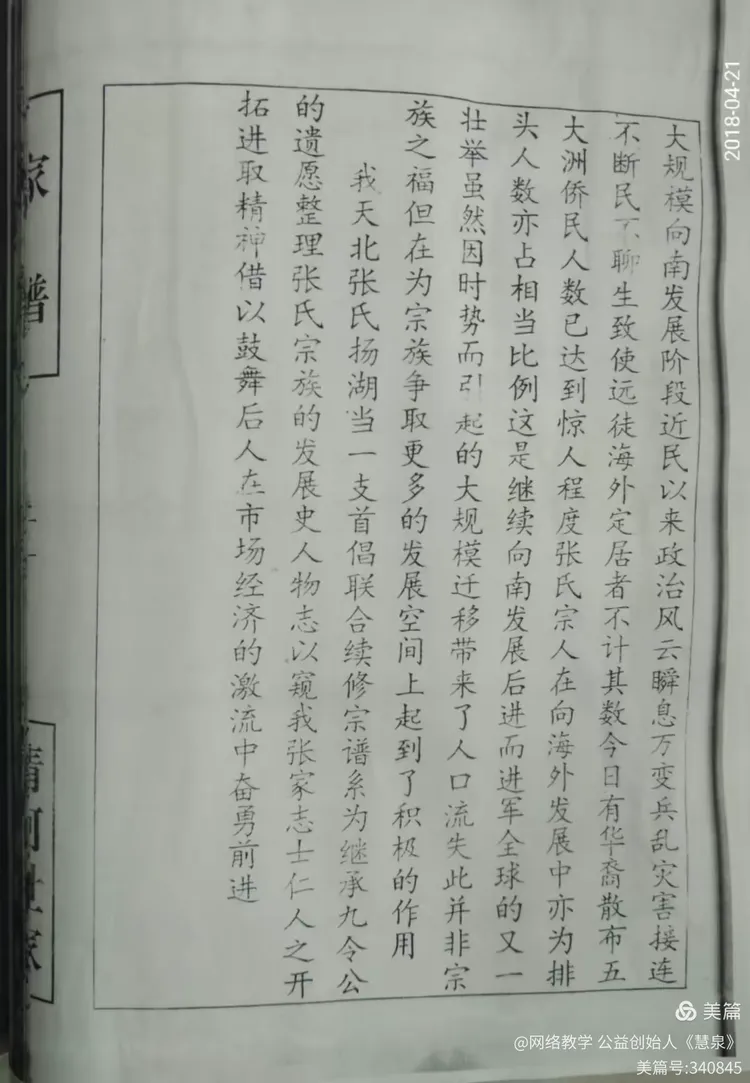 大规模向南发展阶段近民以来政治风云瞬息万变兵乱灾害接连
不断民不聊生致使远徒海外定居者不计其数今日有华裔散布五
大洲侨民人数已达到惊人程度张氏宗人在向海外发展中亦为排
头人数亦占相当比例这是继续向南发展后进而进军全球的又一
壮举虽然因时势而引起的大规模迁移带来了人口流失此并非宗
族之福但在为宗族争取更多的发展空间上起到了积极的作用
我天北张氏扬湖当一支首倡联合续修宗谱系为继承九令公
的遗愿整理张氏宗族的发展史人物志以窥我张家志士仁人之开
拓进取精神借以鼓舞后人在市场经济的激流中奋勇前进
家谱
清河世家
2018-04-21
美篇
@网络教学 公益创始人《慧泉》
美篇号:340845